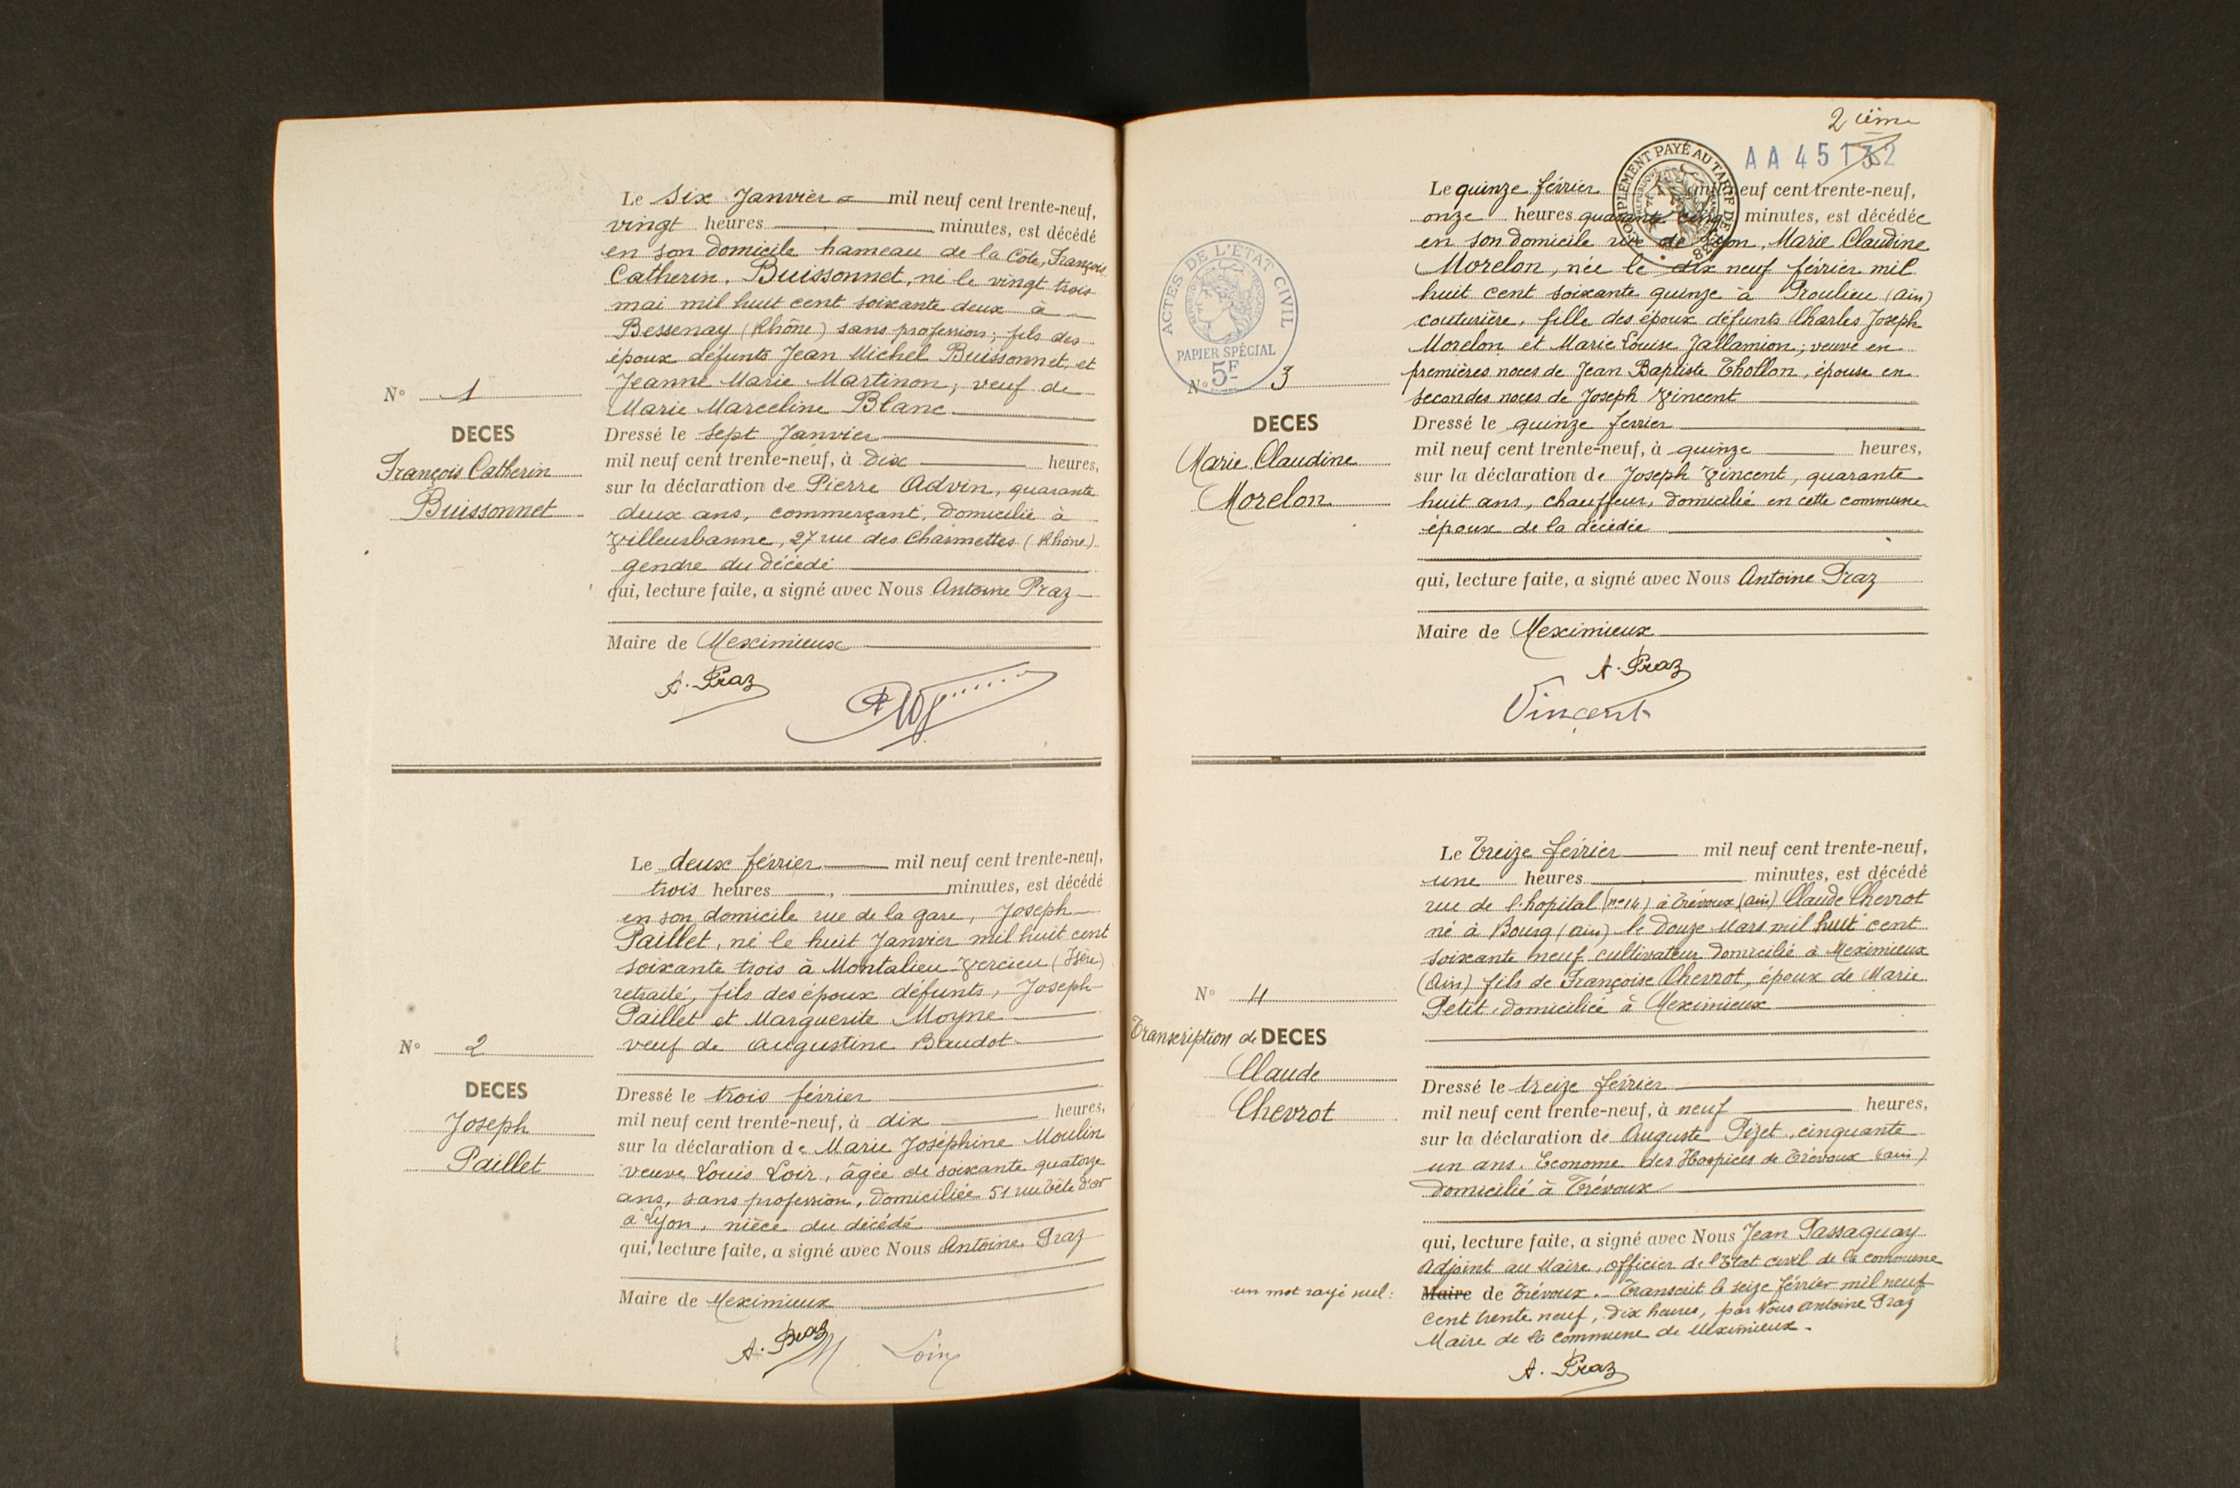 Le Six Janvier mil neuf cent trente-neuf,
vingt heures minutes, est décédé
en son domicile hameau de la Côte, François
Catherin, Buissonnet, né le vingt trois
mai mil huit cent soixante deux à
Bessenay (Rhône) sans profession; fils des
époux défunts Jean Michel Buissonnet, et
Jeanne Marie Martinon, veuf de
Marie Marceline Blanc
N° 1
DECES
François Catherin
Buissonnet
Dressé le Sept Janvier
mil neuf cent trente-neuf, à Dix heures,
sur la déclaration de Pierre Advin, quarante
deux ans, commerçant, domicilié à
Villeurbanne, 27 rue des Charmettes (Rhône)
gendre du décédé
qui, lecture faite, a signé avec Nous Antoine Praz
Maire de Meximieux
A. Praz
Le deux février mil neuf cent trente-neuf,
trois heures minutes, est décédé
en son domicile rue de la gare, Joseph
Paillet, né le huit Janvier mil huit cent
soixante trois à Montalieu Vercieu (Isère)
retraité, fils des époux défunts, Joseph
Paillet et Marguerite Moyne
veuf de Augustine Baudot
N° 2
DECES
Joseph
Paillet
Dressé le trois février
mil neuf cent trente-neuf, à dix heures,
sur la déclaration de Marie Joséphine Moulin
veuve Louis Loir, âgée de soixante quatorze
ans, sans profession, domiciliée 51 rue Tête d'or
à Lyon, nièce du décédé
qui, lecture faite, a signé avec Nous Antoine Praz
Maire de Meximieux
A. Praz M. Loir
2 ième
AA 45132
COMPLÉMENT PAYÉ AU TARIF DE
Le quinze février mil neuf cent trente-neuf,
onze heures quarante cinq minutes, est décédée
en son domicile rue de Lyon, Marie Claudine
Morelon, née le dix neuf février mil
huit cent soixante quinze à Proulieu (Ain)
couturière, fille des époux défunts Charles Joseph
Morelon et Marie Louise Jallamion; veuve en
premières noces de Jean Baptiste Thollon, épouse en
secondes noces de Joseph Vincent
ACTES DE L'ÉTAT CIVIL
PAPIER SPÉCIAL
5F
N° 3
DECES
Marie Claudine
Morelon
Dressé le quinze fevrier
mil neuf cent trente-neuf, à quinze heures,
sur la déclaration de Joseph Vincent, quarante
huit ans, chauffeur, domicilié en cette commune
époux de la décédée
qui, lecture faite, a signé avec Nous Antoine Praz
Maire de Meximieux
A. Praz
Vincent
Le Treize février mil neuf cent trente-neuf,
une heures minutes, est décédé
rue de l'hopital (n° 14) à Trévoux (Ain) Claude Chevrot
né à Bourg (Ain) le Douze Mars mil huit cent
soixante neuf cultivateur domicilié à Meximieux
(Ain) fils de Françoise Chevrot, époux de Marie
Petit, domiciliée à Meximieux
N° 4
Transcription de DECES
Claude
Chevrot
Dressé le treize février
mil neuf cent trente-neuf, à neuf heures,
sur la déclaration de Auguste Pizet, cinquante
un ans. Econome des Hospices de Trévoux (ain)
domicilié à Trévoux
qui, lecture faite, a signé avec Nous Jean Passaquay
Adjoint au Maire, officier de l'Etat civil de la commune
un mot rayé nul: Maire de Trévoux. Transcrit le seize février mil neuf
cent trente neuf, dix heures, par Nous Antoine Praz
Maire de la commune de Meximieux.
A. Praz